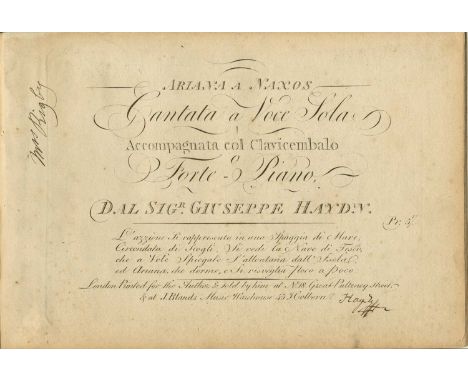 Mrs Rigby
ARIANA A NAXOS
Cantata a Voce Sola
Accompagnata col Clavicembalo
o
Forte-Piano.
DAL SIGR. GIUSEPPE HAYDN.
Pr. 3s.
L'azzione si rappresenta in una Spiaggia di Mare,
Circondata di Scogli. Si vede la Nave di Teseo,
che a Vele Spiegate s'allontana dall' Isola,
ed Ariana, che dorme, e Si risveglia Poco a Poco
London Printed for the Author, & sold by him at No. 18 Great Pulteney Street,
& at J. Blands Music Warehouse 45 Holborn
Haydn